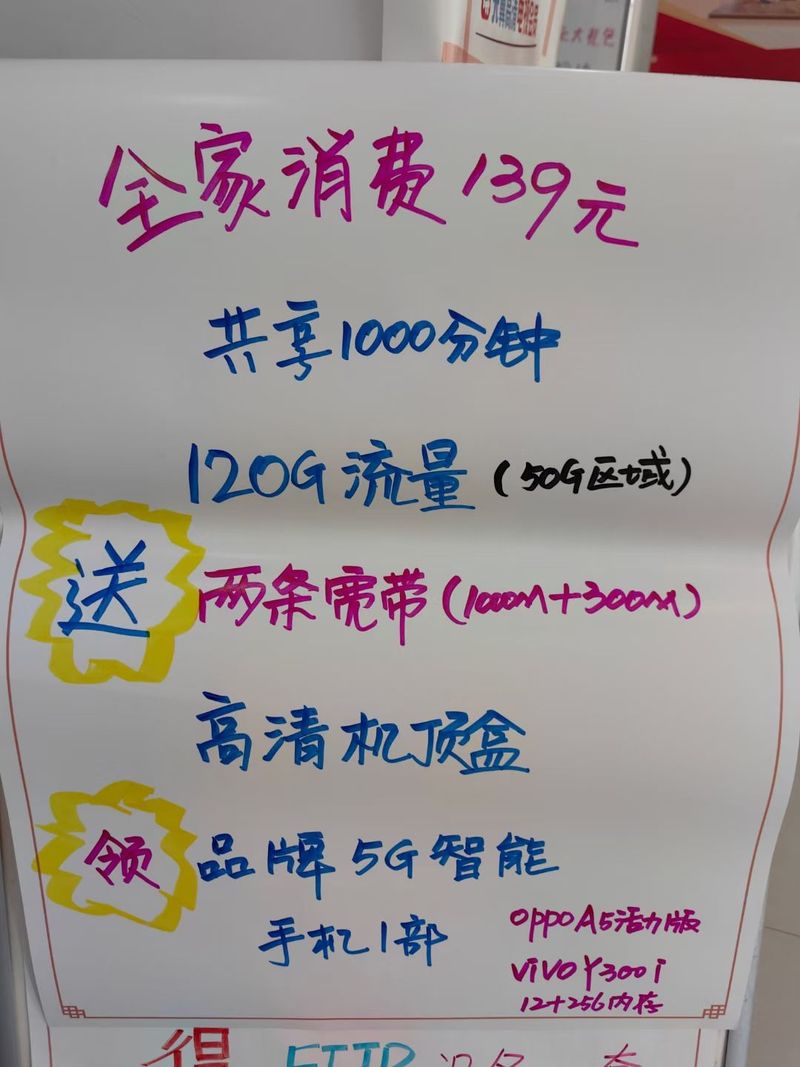 大礼包
全家消费139元
共享1000分钟
120G流量(50G区域)
送 两条宽带(1000M+300M)
高清机顶盒
领 品牌5G智能
手机1部
oppoA5活力版
vivoY300i
12+256内存
得 FTTR